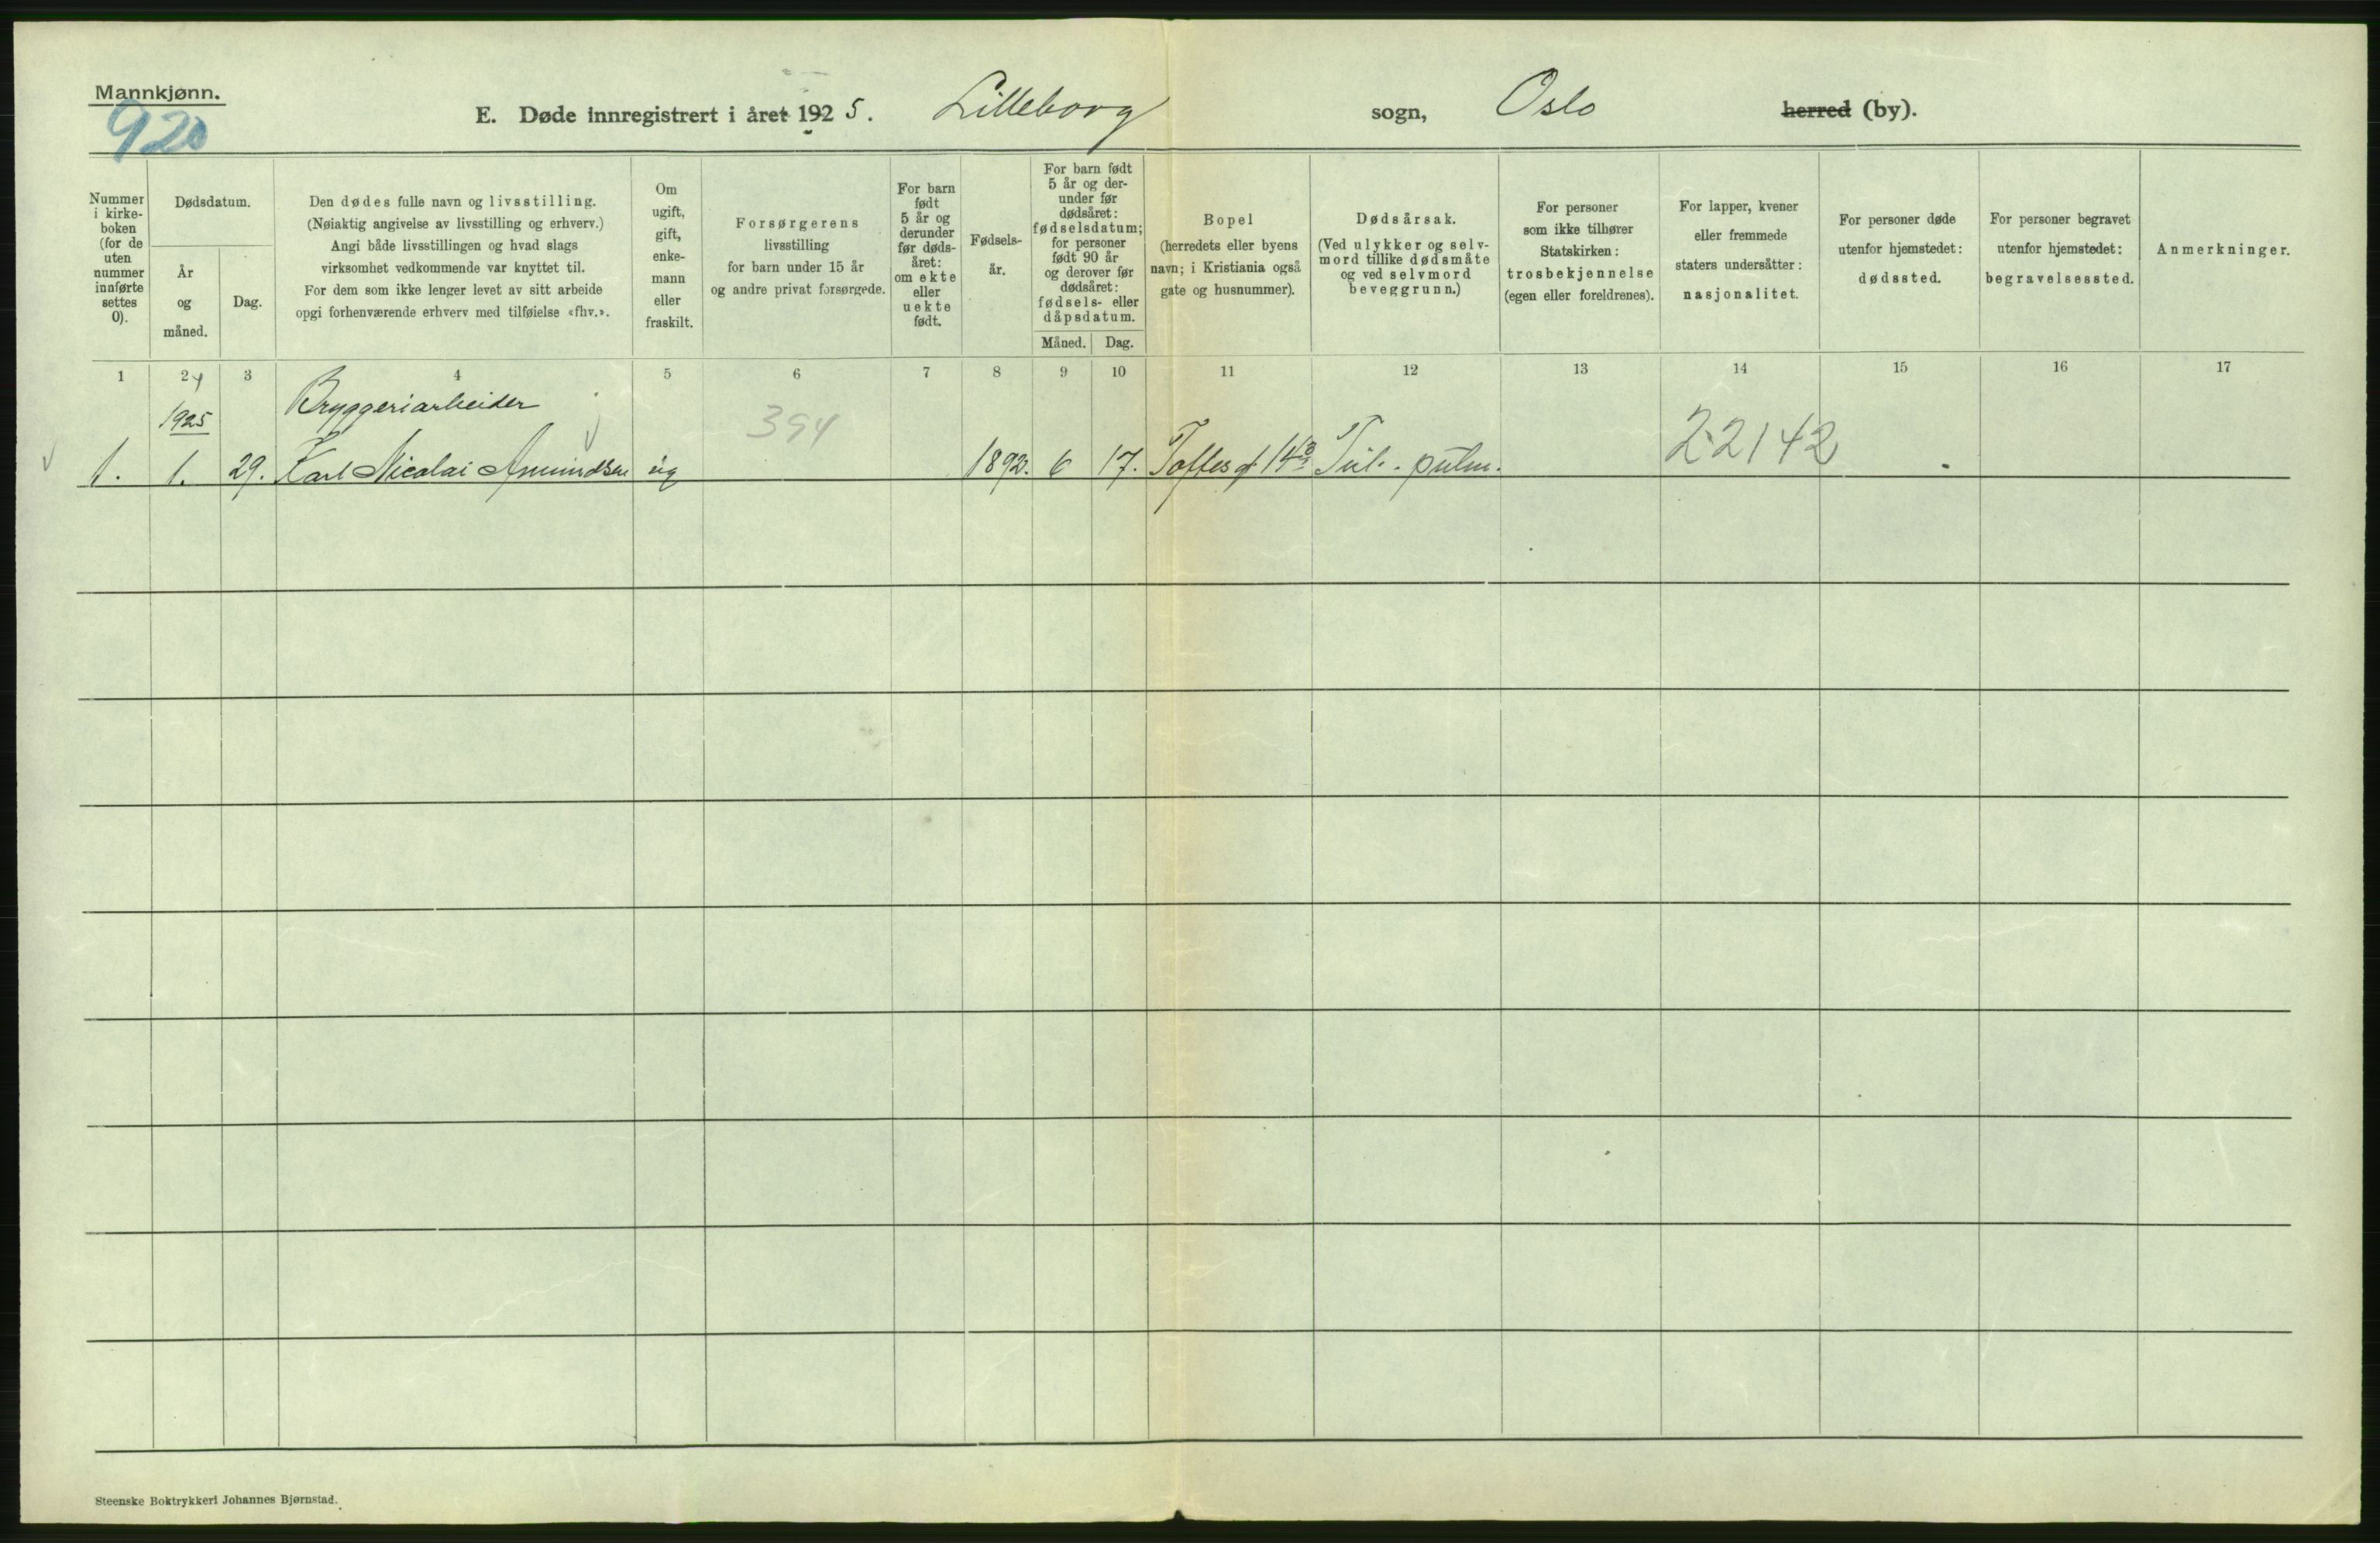 Mannkjønn.
920
E. Døde innregistrert i året 1925. Lilleborg sogn, Oslo herred (by).
Nummer i kirke- boken (for de uten nummer innførte settes 0).
Dødsdatum.
År og måned.
Dag.
Den dødes fulle navn og livsstilling.
(Nøiaktig angivelse av livsstilling og erhverv.)
Angi både livsstillingen og hvad slags
virksomhet vedkommende var knyttet til.
For dem som ikke lenger levet av sitt arbeide
opgi forhenværende erhverv med tilføielse «fhv.».
Om ugift, gift, enke- mann eller fraskilt.
Forsørgerens
livsstilling
for barn under 15 år
og andre privat forsørgede.
For barn født 5 år og derunder før døds- året: om ekte eller uekte født.
Fødsels- år.
For barn født 5 år og der- under før dødsåret: fødselsdatum; for personer født 90 år og derover før dødsåret: fødsels- eller dåpsdatum.
Måned. Dag.
Bopel
(herredets eller byens
navn; i Kristiania også
gate og husnummer).
Dødsårsak.
(Ved ulykker og selv-
mord tillike dødsmåte
og ved selvmord
beveggrunn.)
For personer
som ikke tilhører
Statskirken:
trosbekjennelse
(egen eller foreldrenes).
For lapper, kvener
eller fremmede
staters undersåtter:
nasjonalitet.
For personer døde
utenfor hjemstedet:
dødssted.
For personer begravet
utenfor hjemstedet:
begravelsessted.
Anmerkninger.
1 2 3 4 5 6 7 8 9 10 11 12 13 14 15 16 17
1925 Bryggeriarbeider 394 22142
1. 1. 29. Karl Nicolai Amundsen ug 1892. 6 17. Toftes g. 14 Tub. pulm.
Steenske Boktrykkeri Johannes Bjørnstad.